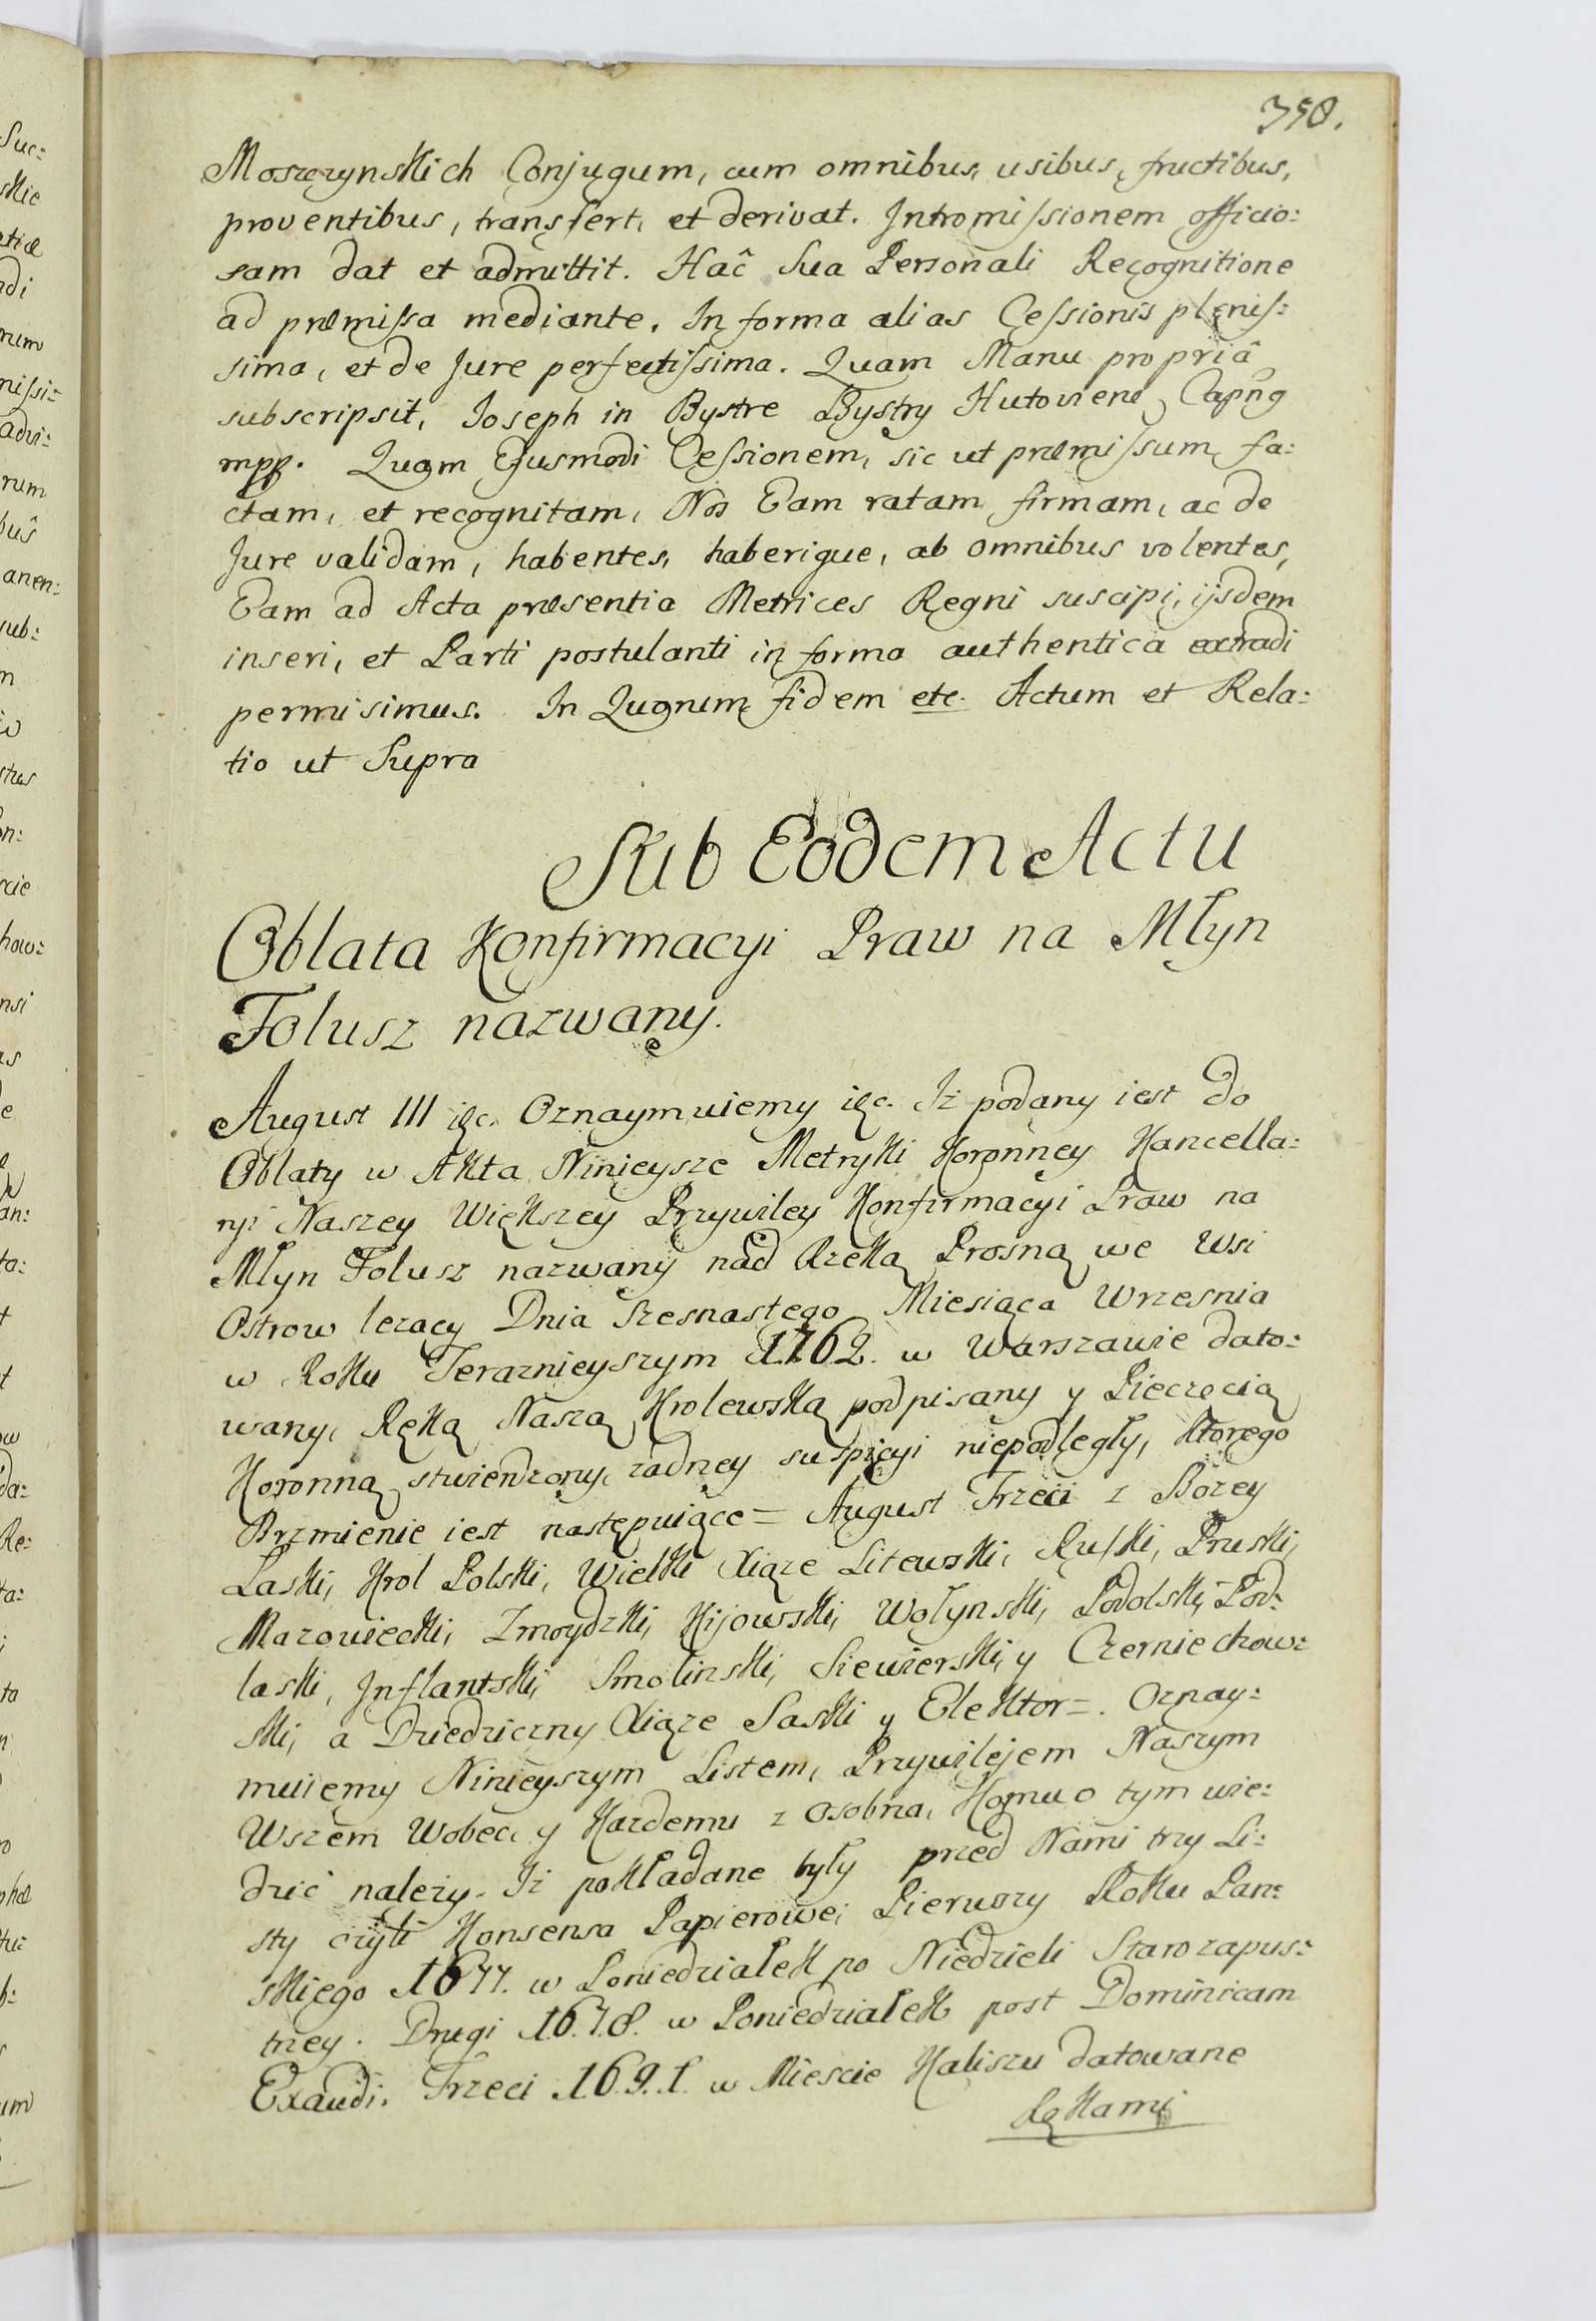 358.
Moszczynskich Conjugum, cum omnibus, usibus, fructibus,
proventibus, transfert, et derivat. Intromissionem officio:
sam dat et admittit. Hac̑ Sua Personali Recognitione
ad præmissa mediante, In forma alias Cessionis plenis:
sima, et de Jure perfectissima. Quam Manu propriâ
subscripsit, Joseph in Bystre Bystry
mpp. Quam Ejusmodi Cessionem, sic ut præmissum fa:
ctam, et recognitam, Nos Eam ratam firmam, ac de
Jure validam, habentes, haberique, ab omnibus volentes,
Eam ad Acta præsentia Metrices Regni suscipi, ijsdem
inseri, et Parti postulanti in forma authentica extradi
permisimus. In Quorum fidem etc. Actum et Rela:
tio ut Supra
Sub Eodem Actu
Oblata Konfirmacyi Praw na Młyn
Folusz nazwany.
August III etc. Oznaymuiemy etc. Iż podany iest do
Oblaty w Akta Ninieysze Metryki Koronney Kancella:
ryi Naszey Większey Przywiley Konfirmacyi Praw na
Młyn Folusz nazwany nad Rzeką Prosną we Wsi
Ostrow lezacy Dnia Szesnastego Miesiąca Wrzesnia
w Roku Teraznieyszym 1762. w Warszawie dato:
wany, Ręką Naszą Krolewską podpisany y Pieczęcią
Koronną stwierdzony, zadney suspicyi niepodległy, ktorego
Brzmienie iest następuiące = August Trzeci z Bozey
Łaski, Krol Polski, Wielki Xiąze Litewski, Ruski, Pruski,
Mazowiecki, Zmoydzki, Kijowski, Wołynski, Podolski, Pod:
laski, Inflantski, Smolinski, Siewierski, y Czerniechow:
ski, a Dziedziczny Xiąze Saski y Elektor =. Oznay:
muiemy Ninieyszym Listem, Przywilejem Naszym
Wszem Wobec, y Kazdemu z Osobna, Komu o tym wie:
dzić nalezy. Iz pokładane były przed Nami trzy Li:
sty czyli Konsensa Papierowe, Pierwszy Roku Pan:
skiego 1677. w Poniedziałek po Niedzieli Starozapus:
tney. Drugi 1678. w Poniedziałek post Dominicam
Exaudi. Trzeci 1691. w Miescie Kaliszu datowane
Rękami